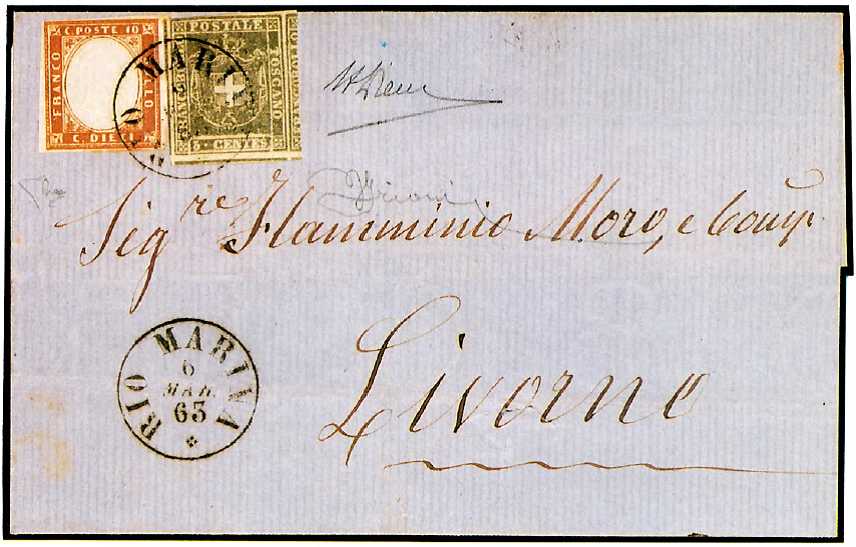 C. POSTE 10
FRANCO
BOLLO
C. DIECI
POSTALE
TOSCANO
5 CENTES
MARI
Sigre Flamminio Moro, e Comp.
Livorno
RIO MARINA
6
MAR.
63